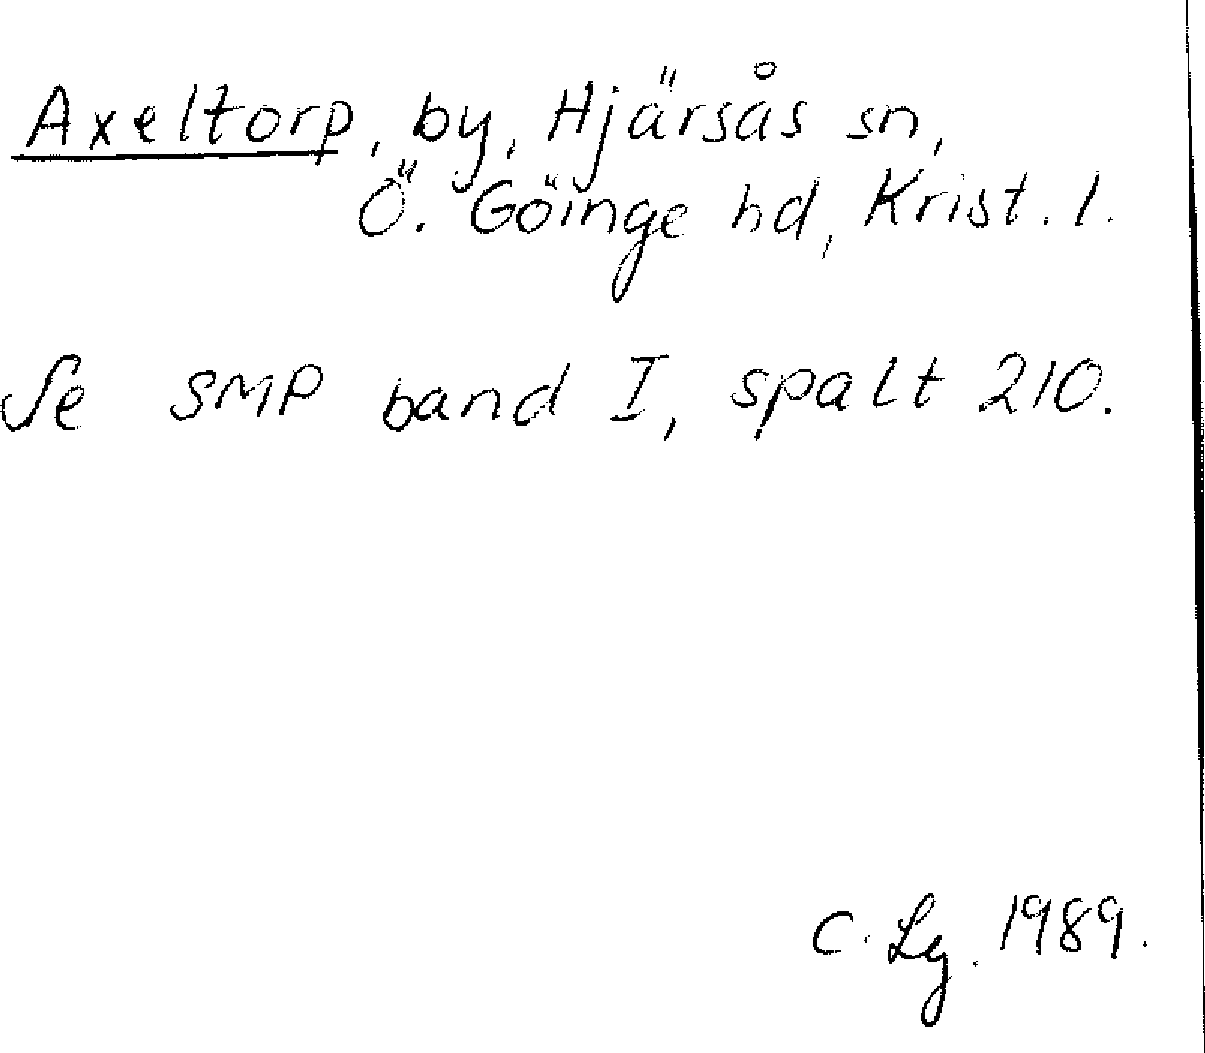 Axeltorp, by, Hjärsås sn,
Ö. Göinge hd, Krist. l.
Se SMP band I, spalt 210.
C. Lg. 1989.